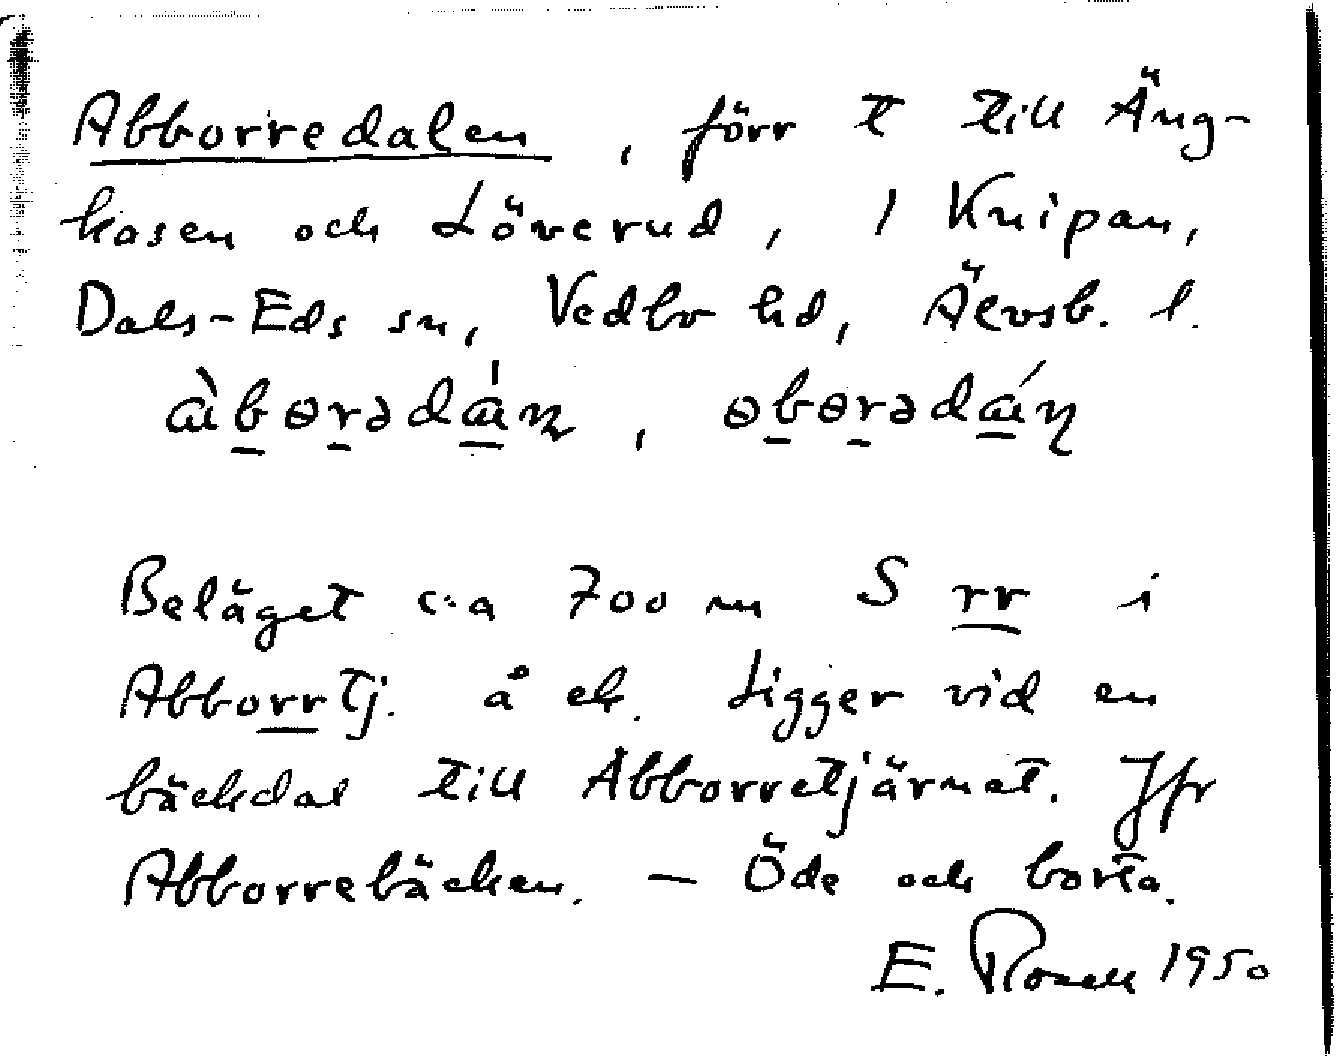 Abborredalen, förr tt till Äng-
kasen och Löverud, 1 Knipan,
Dals-Eds sn, Vedbo hd, Älvsb. l.
àbɵrədán, ɵbɵrədán
Beläget c:a 700 m S rr i
Abborrtj. å ek. Ligger vid en
bäckdal till Abborretjärnet. Jfr
Abborrebäcken. — Öde och borta.
E. Rosell 1950